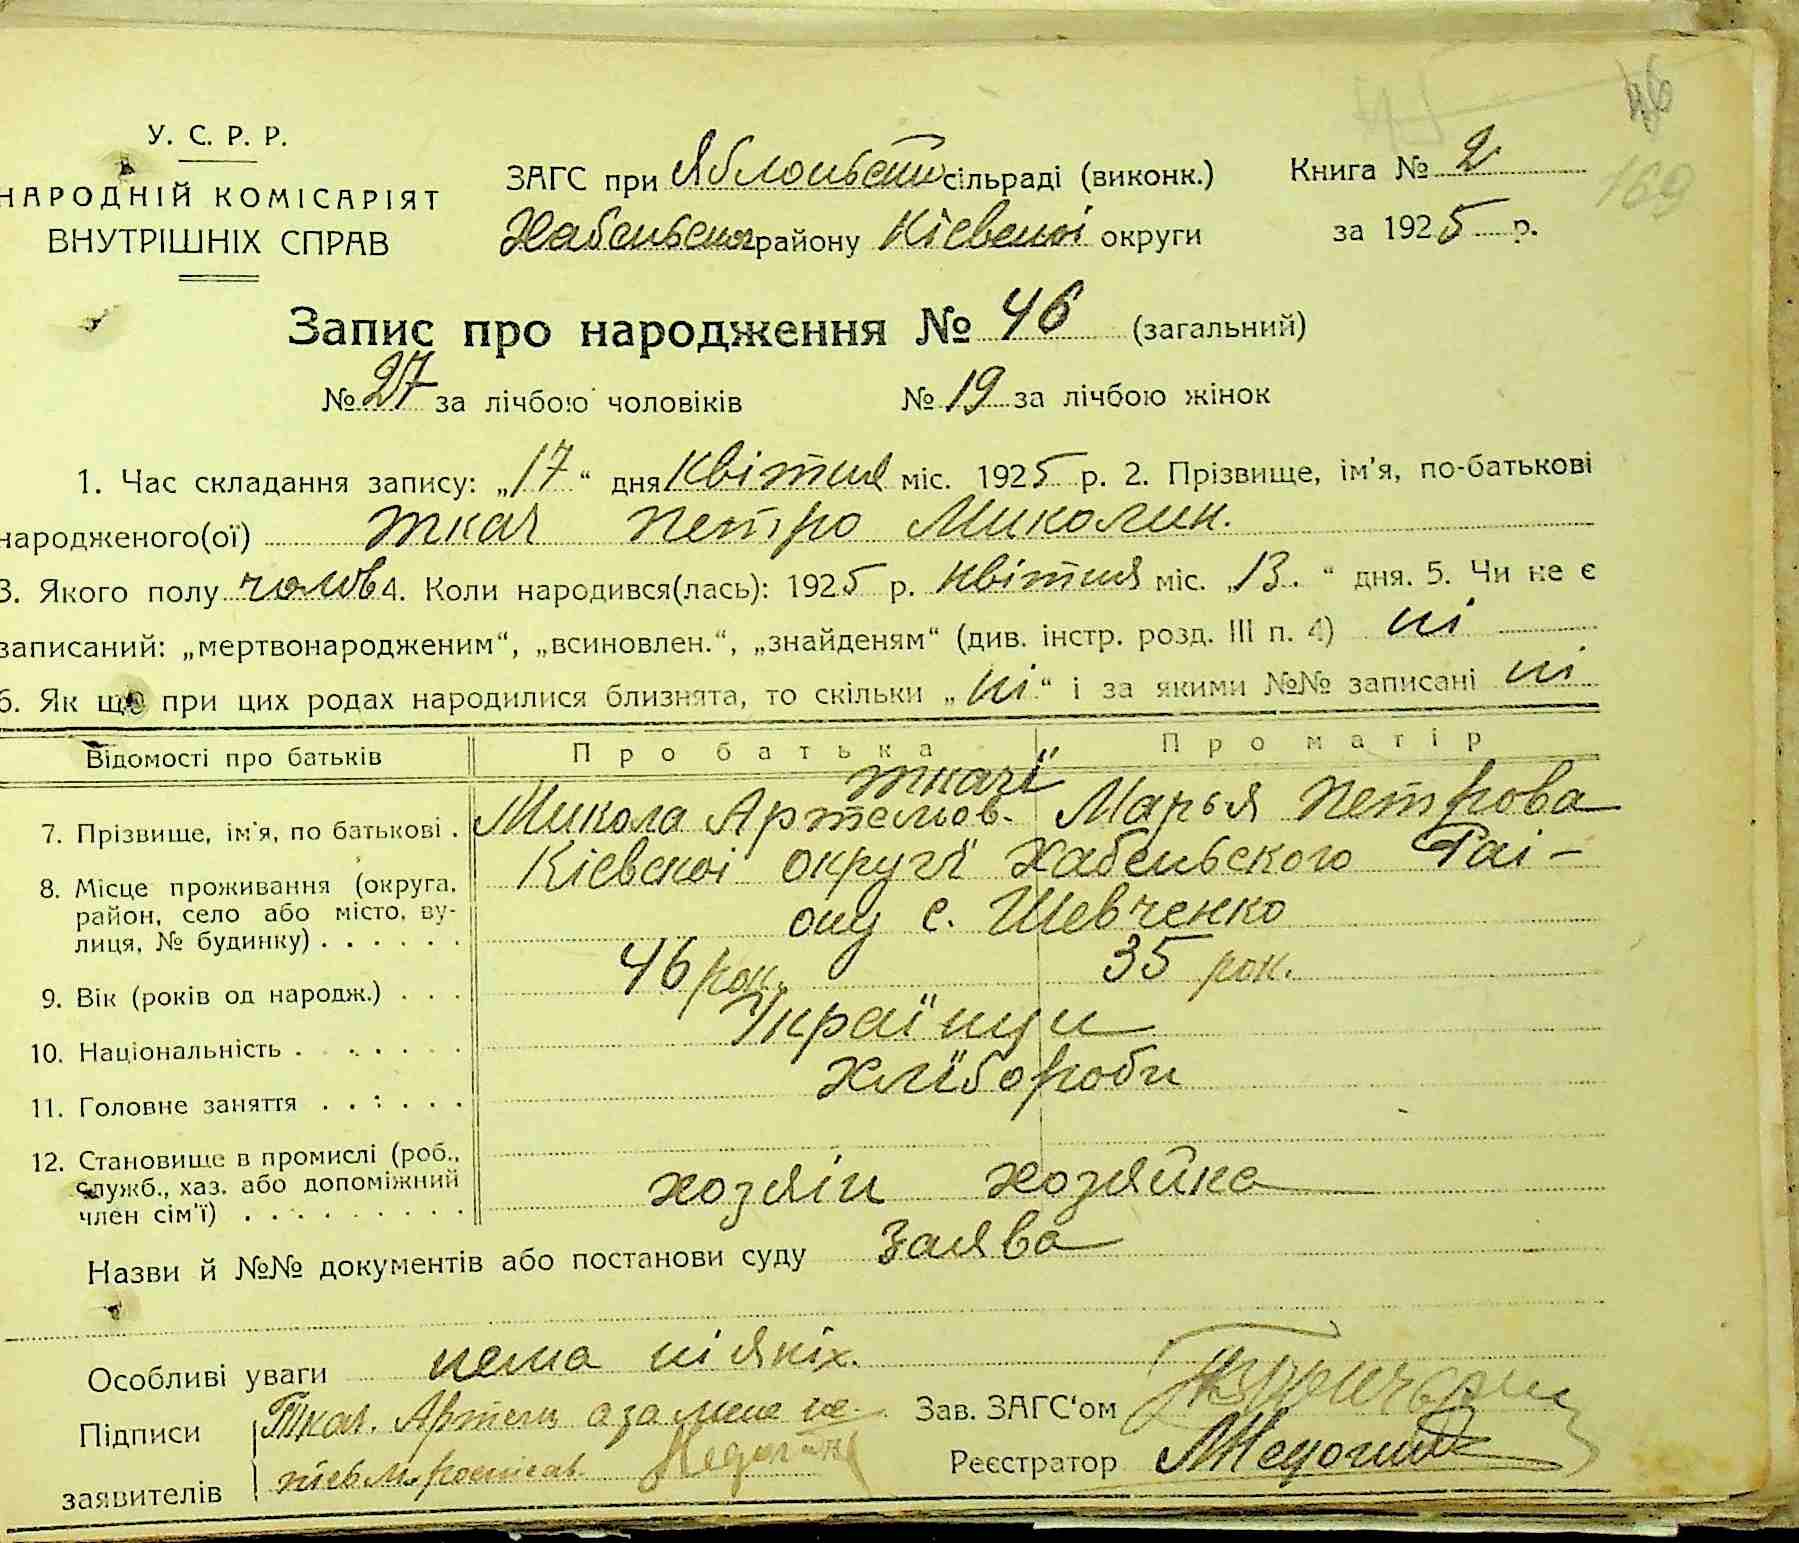 46
169
У. С. Р. Р.
НАРОДНІЙ КОМІСАРІЯТ
ВНУТРІШНІХ СПРАВ
ЗАГС при Яблоньскій сільраді (виконк.)
Хабеньског району Кіевскоі округи
Книга № 2
за 1925 р.
Запис про народження № 46 (загальний)
№ 27 за лічбою чоловіків № 19 за лічбою жінок
1. Час складання запису: „17“ дня Квітня міс. 1925 р. 2. Прізвище, ім'я, по-батькові
народженого(ої) Ткач Петро Миколин.
3. Якого полу чолов 4. Коли народився(лась): 1925 р. Квітня міс. „13.“ дня. 5. Чи не є
записаний: „мертвонародженим“, „всиновлен.“, „знайденям“ (див. інстр. розд. III п. 4) ні
6. Як що при цих родах народилися близнята, то скільки „ні“ і за якими №№ записані ні
Відомості про батьків Про батька Про матір
Ткачі
7. Прізвище, ім'я, по батькові . Микола Артемов. Марья Петрова
8. Місце проживання (округа, район, село або місто, вулиця, № будинку) . . . . . . Кіевскоі округи Хабеньского Раі-
ону с. Шевченко
9. Вік (років од народж.) . . . 46 рок. 35 рок.
10. Національність . . . . . . . Українци
11. Головне заняття . . . . . . Хлїбороби
12. Становище в промислі (роб.,
служб., хаз. або допоміжний
член сім'ї) . . . . . . . . . хозяін хозяйка
Назви й №№ документів або постанови суду заява
Особливі уваги нема ні якіх.
Підписи Ткач. Артем а за мене не-
заявителів росписав.
Зав. ЗАГС'ом
Реєстратор